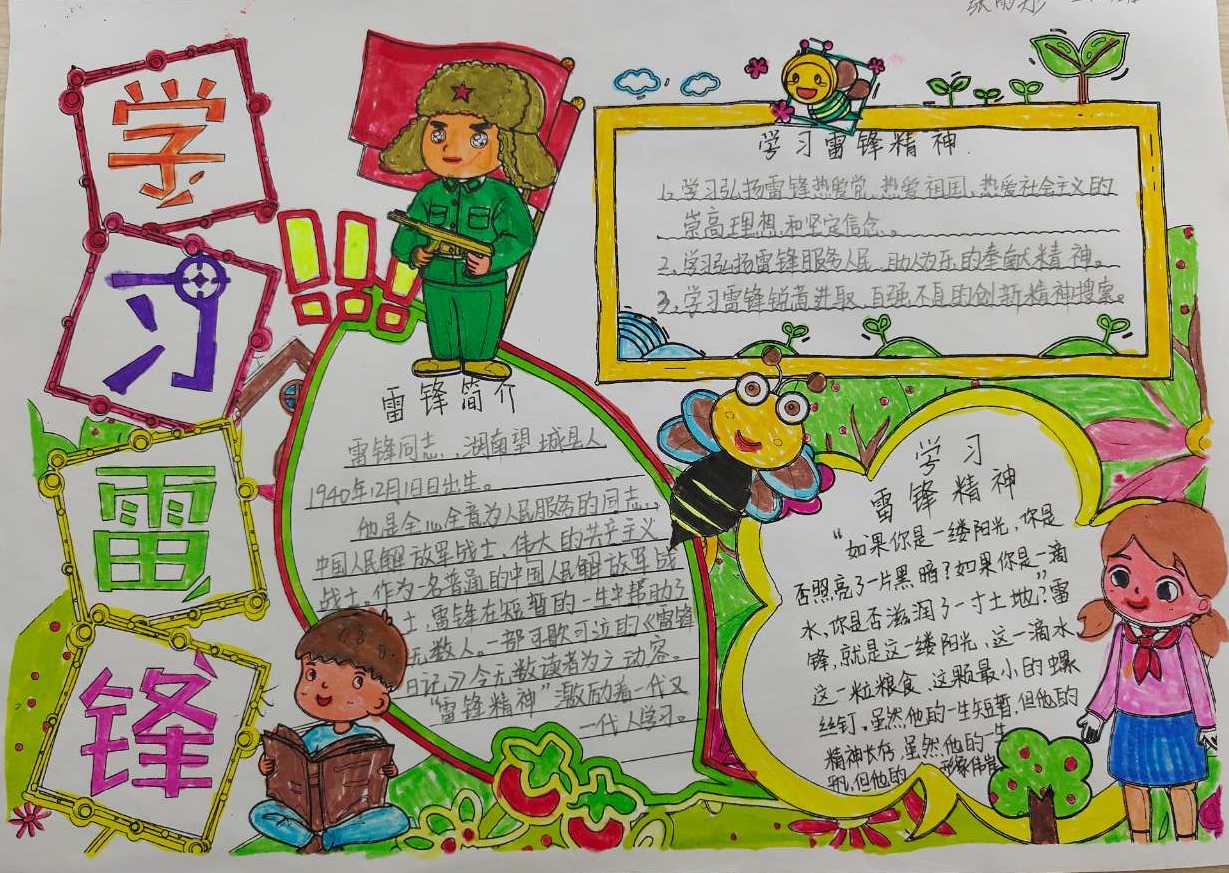 学
习
雷
锋
学习雷锋精神
1、学习弘扬雷锋热爱党、热爱祖国、热爱社会主义的
崇高理想和坚定信念、。
2、学习弘扬雷锋服务人民、助人为乐的奉献精神。
3、学习雷锋锐意进取、自强不息的创新精神搜索。
雷锋简介
雷锋同志、湖南望城县人
1940年12月18日出生。
他是全心全意为人民服务的同志、
中国人民解放军战士、伟大的共产主义
战士,作为一名普通的中国人民解放军战
士,雷锋在短暂的一生中帮助了
无数人。一部可歌可泣的《雷锋
日记》今天数读者为之动容。
“雷锋精神”激励着一代又
一代人学习。
学习
雷锋精神
“如果你是一缕阳光,你是
否照亮了一片黑暗?如果你是一滴
水,你是否滋润了一寸土地?”雷
锋,就是这一缕阳光,这一滴水
这一粒粮食,这颗最小的螺
丝钉,虽然他的一生短暂,但他的
精神长存,虽然他的一生
,但他的 形象伟